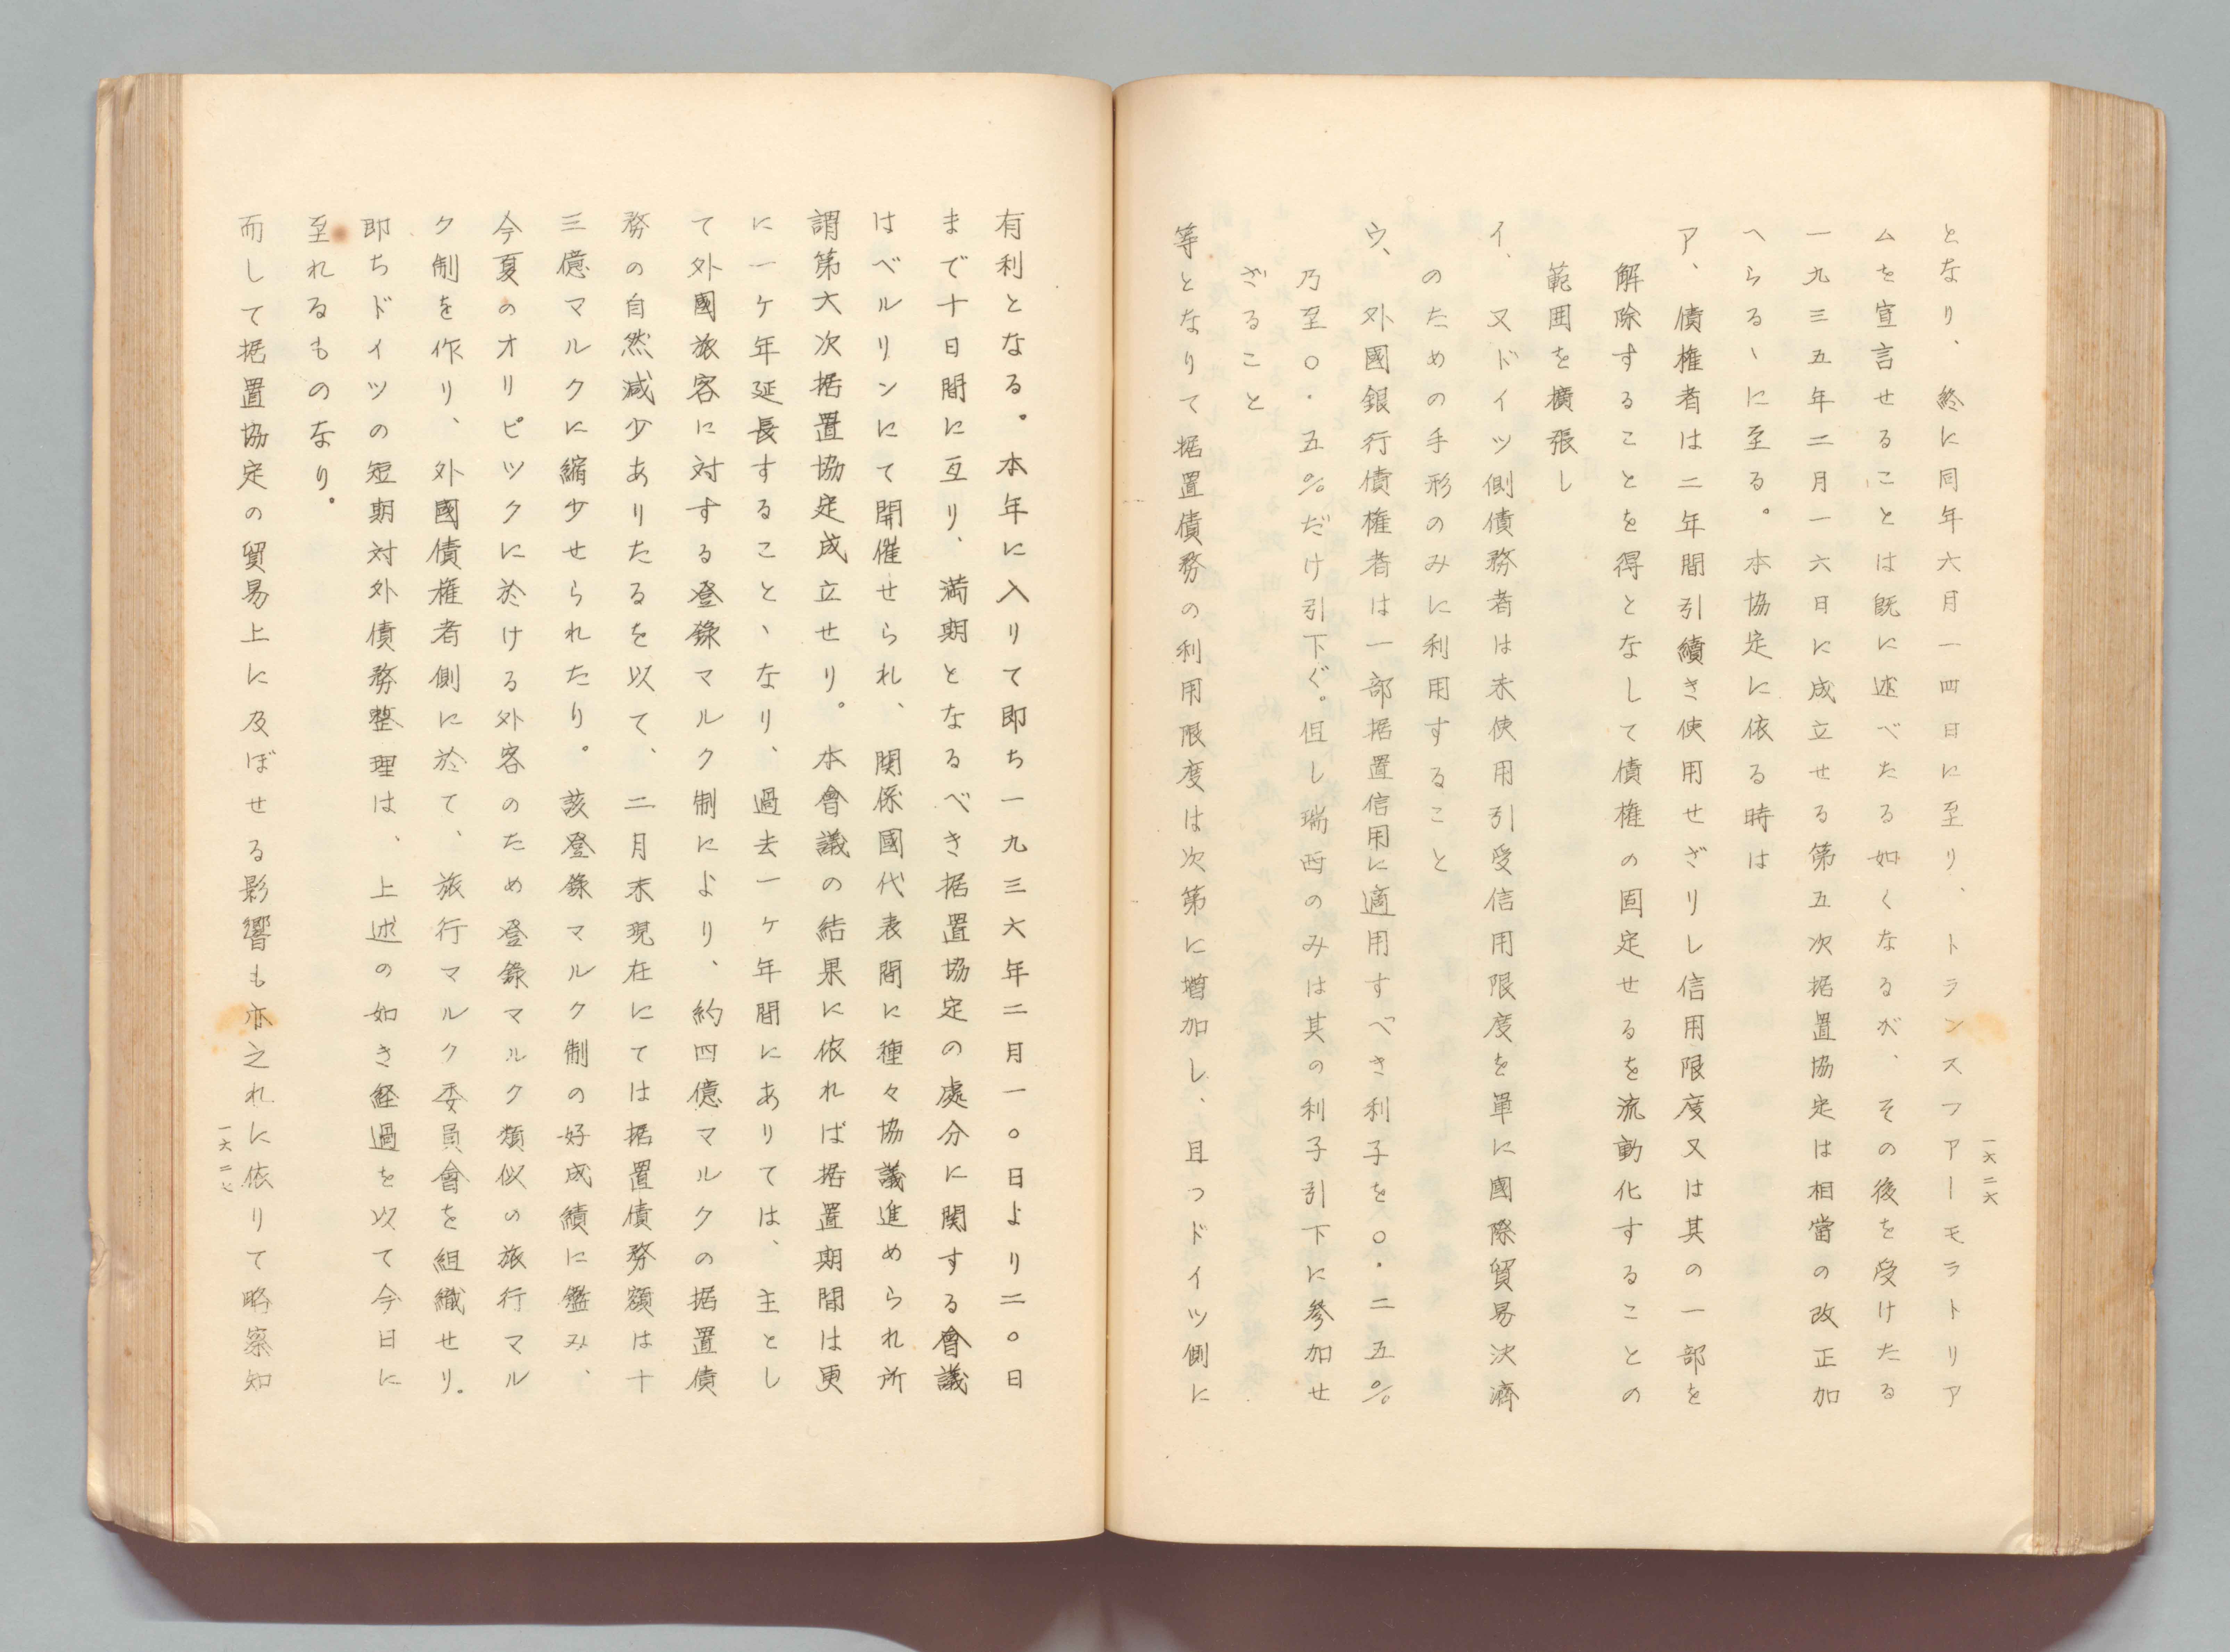 一六二六
となり、終に同年六月一四日に至り、トランスフアーモラトリア
ムを宣言せることは既に述べたる如くなるが、その後を受けたる
一九三五年二月一六日に成立せる第五次据置協定は相當の改正加
へらるゝに至る。本協定に依る時は
ア、債権者は二年間引續き使用せざりし信用限度又は其の一部を
解除することを得となして債権の固定せるを流動化することの
範囲を擴張し
イ、又ドイツ側債務者は未使用引受信用限度を單に國際貿易決濟
のための手形のみに利用すること
ウ、外國銀行債権者は一部据置信用に適用すべき利子を〇・二五%
乃至〇・五%だけ引下ぐ。但し瑞西のみは其の利子引下に參加せ
ざること
等となりて据置債務の利用限度は次第に增加し、且つドイツ側に
有利となる。本年に入りて即ち一九三六年二月一〇日より二〇日
まで十日間に互り、満期となるべき据置協定の處分に関する會議
はベルリンにて開催せられ、関係國代表間に種々協議進められ所
謂第六次据置協定成立せり。本會議の結果に依れば据置期間は更
に一ケ年延長すること、なり、過去一ケ年間にありては、主とし
て外國旅客に対する登錄マルク制により、約四億マルクの据置債
務の自然減少ありたるを以て、二月末現在にては据置債務額は十
三億マルクに縮少せられたり。該登錄マルク制の好成績に鑑み、
今夏のオリピツクに於ける外客のため登錄マルク類似の旅行マル
ク制を作り、外國債権者側に於て、旅行マルク委員會を組織せり。
即ちドイツの短期対外債務整理は、上述の如き経過を以て今日に
至れるものなり。
而して据置協定の貿易上に及ぼせる影響も亦之れに依りて略察知
一六二七